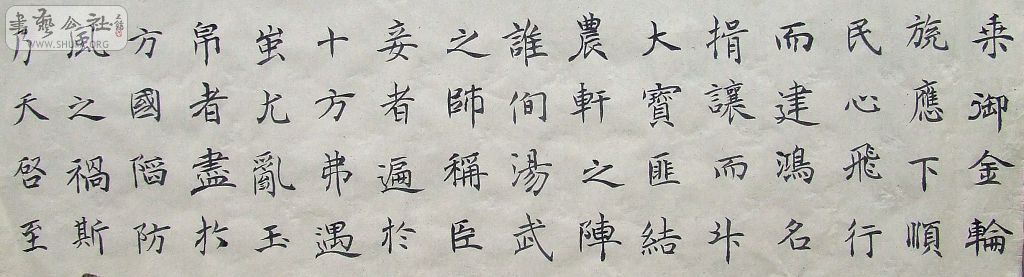 乗御金輪
旒應下順
民心飛行
而建鴻名
揖讓而升
大寶匪結
農軒之陣
誰伺湯武
之師稱臣
妾者遍於
十方弗遇
蚩尤亂玉
帛者盡於
方國陋防
風之禍斯
乃天啓至
書藝公社
WWW.SHUFA.ORG